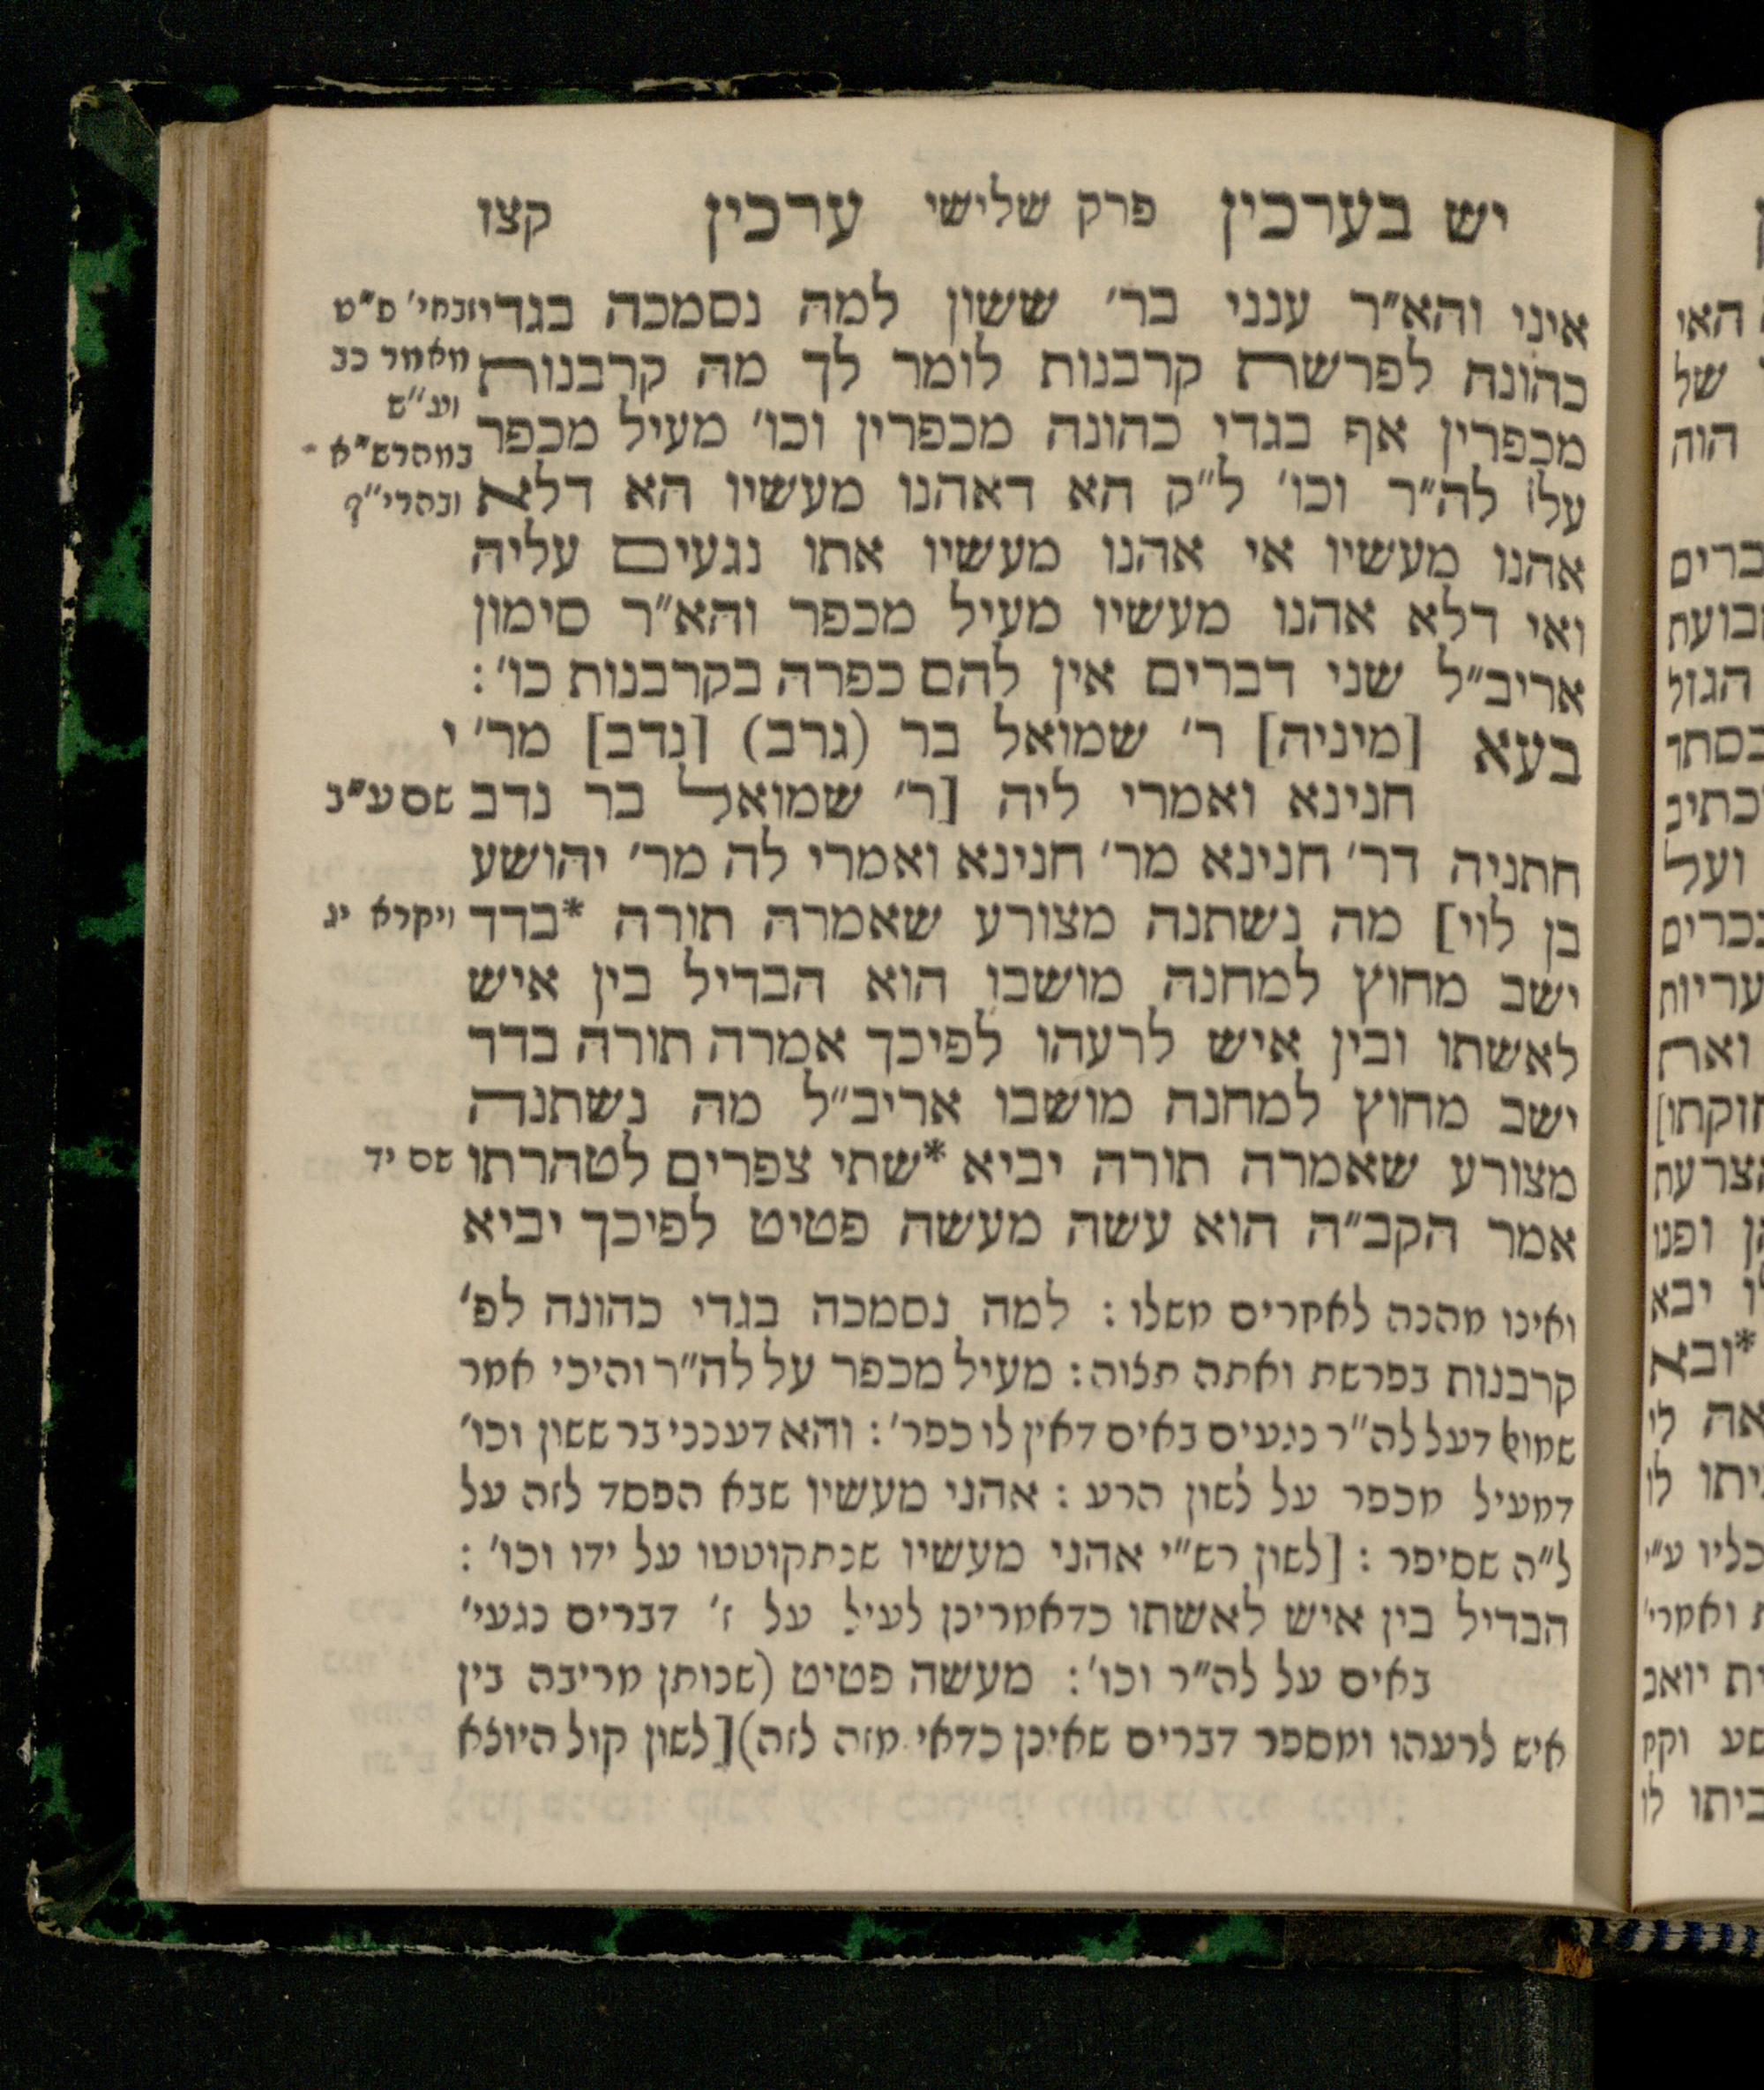 יש בערכין פרק שלישי ערכין קצו
איני והא״ר ענני בר׳ ששון למה נסמכה בגדי
כהונה לפרשת קרבנות לומר לך מה קרבנות
מכפרין אף בגדי כהונה מכפרין וכו׳ מעיל מכפר
על לה״ר וכו׳ ל״ק הא דאהנו מעשיו הא דלא
אהנו מעשיו אי אהנו מעשיו אתו נגעים עליה
ואי דלא אהנו מעשיו מעיל מכפר והא״ר סימון
אריב״ל שני דברים אין להם כפרה בקרבנות כו׳:
בעא [מיניה] ר׳ שמואל בר (גרב) [נדב] מר׳ י
חנינא ואמרי ליה [ר׳ שמואל בר נדב
חתניה דר׳ חנינא מר׳ חנינא ואמרי לה מר׳ יהושע
בן לוי] מה נשתנה מצורע שאמרה תורה *בדד
ישב מחוץ למחנה מושבו הוא הבדיל בין איש
לאשתו ובין איש לרעהו לפיכך אמרה תורה בדד
ישב מחוץ למחנה מושבו אריב״ל מה נשתנה
מצורע שאמרה תורה יביא *שתי צפרים לטהרתו
אמר הקב״ה הוא עשה מעשה פטיט לפיכך יביא
זבחי׳
מאמר כב
וע״ש
במהרש״א
ובהרי״ף
שם ע״ב
ויקרא יג
שם יד
ואינו מהנה לאמרים משלו: למה נסמכה בגדי כהונה לפ׳
קרבנות בפרשת ואתה תצוה: מעיל מכפר על לה״ר והיכי אמר
דעל לה״ר נגעים באים דאין לו כפר׳: והא דענני בר ששון וכו׳
דמעיל מכפר על לשון הרע: אהני מעשיו שבא הפסד לזה על
ל״ה שסיפר: [לשון רש״י אהני מעשיו שנתקוטטו על ידו וכו׳:
הבדיל בין איש לאשתו כדאמרינן לעיל על ז׳ דברים נגעי׳
באים על לה״ר וכו׳: מעשה פטיט (שנותן מריבה בין
איש לרעהו ומספר דברים שאינן כדאי מזה לזה)[לשון קול היוצא